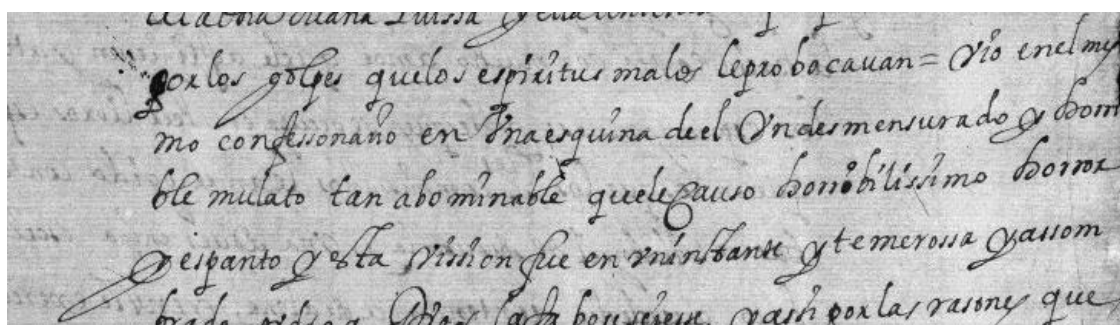 Juana Luissa
por los golpes que los espiritus malos le probocavan = Vio en el mis
mo confessonario en Vna esquina de el Vn desmensurado y horri
ble mulato tan abominable que le Causo horribilissimo horror
y espanto y esta Vission fue en vn instante y temerossa y assom
brada a Dios y assi por las rasones que